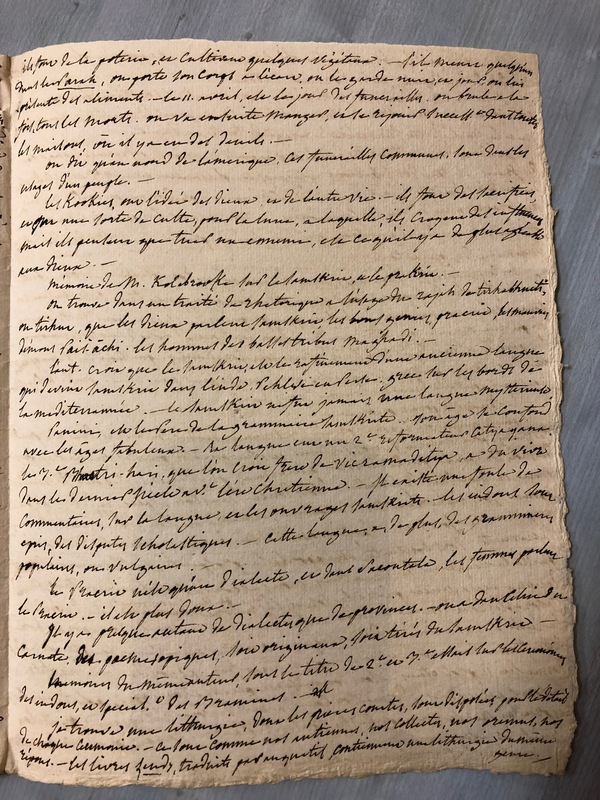 ils font de la poterie, et cultivent quelques végétaux. — s'il meurt quelqu'un
dans le Parah, on porte son corps à l'écart, on le garde nuit et jour on lui
présente des aliments. le 11 avril, est le jour des funerailles. on brule à la
fois, tous les morts. on va ensuite manger, et se rejouir dans toutes
les maisons, où il y a eu des deuils. —
on dit qu'au nord de lamerique, ces funerailles communes, sont dans les
usages d'un peuple. —
les Kookies, ont l'idée des dieux et de l'autre vie. — ils font des sacrifices,
et une sorte de culte, pour la lune, a laquelle, ils croyent des influences
mais ils pensent que tuer un ennemi, est ce qu'il y a de plus agréable
aux dieux. —
memoire de M. Kolebrooke sur le samskrit, et le prakrit. —
on trouve dans un traité de rhetorique a l'usage du rajah de tirhabhukti,
ou tirhut, que les dieux parlent samskrit les genies, pracrit, les mauvais
démons Paisàchi. les hommes des basses tribus Maghadi. —
laut. croit que le samskrit, est le rafinement d'une ancienne langue
qui devint samskrit dans l'inde, Pehlvi en Perse, grec sur les bords de
la mediterrannée. — le samskrit ne fut jamais une langue mysterieuse
Panini, est le Père de la grammaire samskrite. son age se confond
avec les ages fabuleux. — sa langue eut un 2.e reformateur Catyayana
le 3.e Bhartri-hari, que l'on croit frere de Vicramaditya, a du vivre
dans le dernier siecle av.t l'ère Chretienne. — Il existe une foule de
Commentaires, sur la langue, et les ouvrages samskrits. les indous sont
epris, des disputes scholastiques. — cette langue, a, de plus, des grammaires
populaires, ou vulgaires. —
le Pracrit n'est qu'un dialecte, et dans Sacontala, les femmes parlent
le Pracrit. — il est plus doux. —
Il y a presque autant de dialectes que de provinces. — on a dans l'inde
Carnate, des soit originaux, soit tirés du samskrit —
memoires du même auteur, sous le titre de 2.e et 3.e essai sur les ceremonies
des indous, et special.t des Bramines. —
je trouve, une lithurgie, dont les prieres courtes, sont disposées pour le détail
de chaque ceremonie. — ce sont comme nos antiennes, nos collectes, nos oremus, nos
repons. — les livres zends, traduits par anquetil, contiennent une lithurgie du même
genre. —